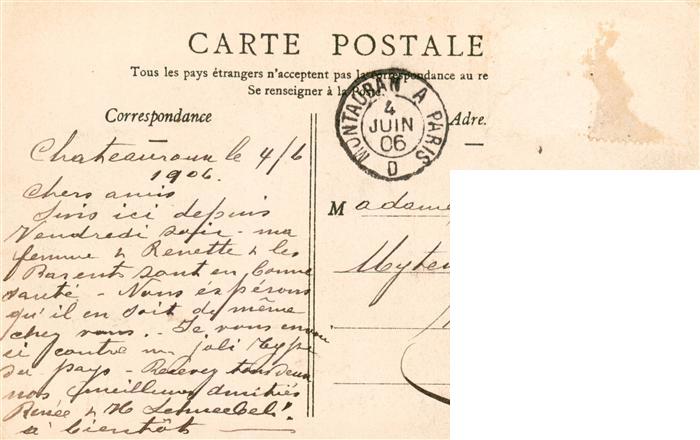 CARTE POSTALE
Tous les pays étrangers n'acceptent pas la correspondance au re
Se renseigner à la Poste.
Correspondance
Adre.
MONTAUBAN A PARIS
4
JUIN
06
D
Chateauroux le 4/6
1906.
Chers amis
Suis ici depuis
Vendredi soir - ma
femme & Renette & les
Parents sont en bonne
santé - Nous espérons
qu'il en soit de même
chez vous. - Je vous envoie
ci contre un joli type
du pays - Recevez tous deux
nos meilleures amitiés
Renée & H
à bientôt
M adame